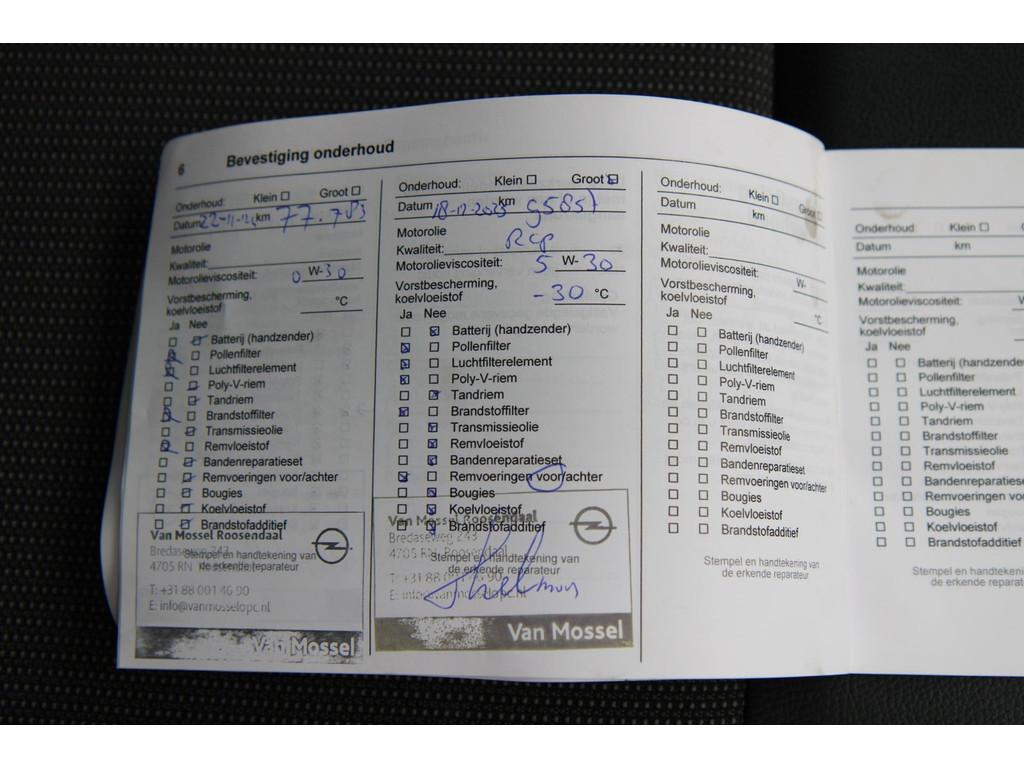 6 Bevestiging onderhoud
Onderhoud: Klein ☐ Groot ☐
Datum 22-11- km 77.783
Motorolie
Kwaliteit:
Motorolieviscositeit: 0 W-30
Vorstbescherming,
koelvloeistof °C
Ja Nee
Batterij (handzender)
Pollenfilter
Luchtfilterelement
Poly-V-riem
Tandriem
Brandstoffilter
Transmissieolie
Remvloeistof
Bandenreparatieset
Remvoeringen voor/achter
Bougies
Koelvloeistof
Brandstofadditief
Van Mossel Roosendaal
Bredaseweg 243
Stempel en handtekening van
4705 RN
de erkende reparateur
T: +31 88 001 46 90
E: info@vanmosselopc.nl
Van Mossel
Onderhoud: Klein ☐ Groot ☒
Datum 18-12-2023 km 95857
Motorolie
Kwaliteit:
Motorolieviscositeit: 5 W-30
Vorstbescherming,
koelvloeistof -30 °C
Ja Nee
Batterij (handzender)
Pollenfilter
Luchtfilterelement
Poly-V-riem
Tandriem
Brandstoffilter
Transmissieolie
Remvloeistof
Bandenreparatieset
Remvoeringen voor/achter
Bougies
Koelvloeistof
Brandstofadditief
Van Mossel Roosendaal
Bredaseweg 243
Stempel en handtekening van
4705 RN Roosendaal
de erkende reparateur
Van Mossel
Onderhoud: Klein ☐ Groot ☐
Datum km
Motorolie
Kwaliteit:
Motorolieviscositeit: W-
Vorstbescherming,
koelvloeistof °C
Ja Nee
Batterij (handzender)
Pollenfilter
Luchtfilterelement
Poly-V-riem
Tandriem
Brandstoffilter
Transmissieolie
Remvloeistof
Bandenreparatieset
Remvoeringen voor/achter
Bougies
Koelvloeistof
Brandstofadditief
Stempel en handtekening van
de erkende reparateur
Onderhoud: Klein ☐
Datum km
Motorolie
Kwaliteit:
Motorolieviscositeit:
Vorstbescherming,
koelvloeistof
Ja Nee
Batterij (handzender
Pollenfilter
Luchtfilterelement
Poly-V-riem
Tandriem
Brandstoffilter
Transmissieolie
Remvloeistof
Bandenreparatiese
Remvoeringen voor
Bougies
Koelvloeistof
Brandstofadditief
Stempel en handtekeni
de erkende reparat